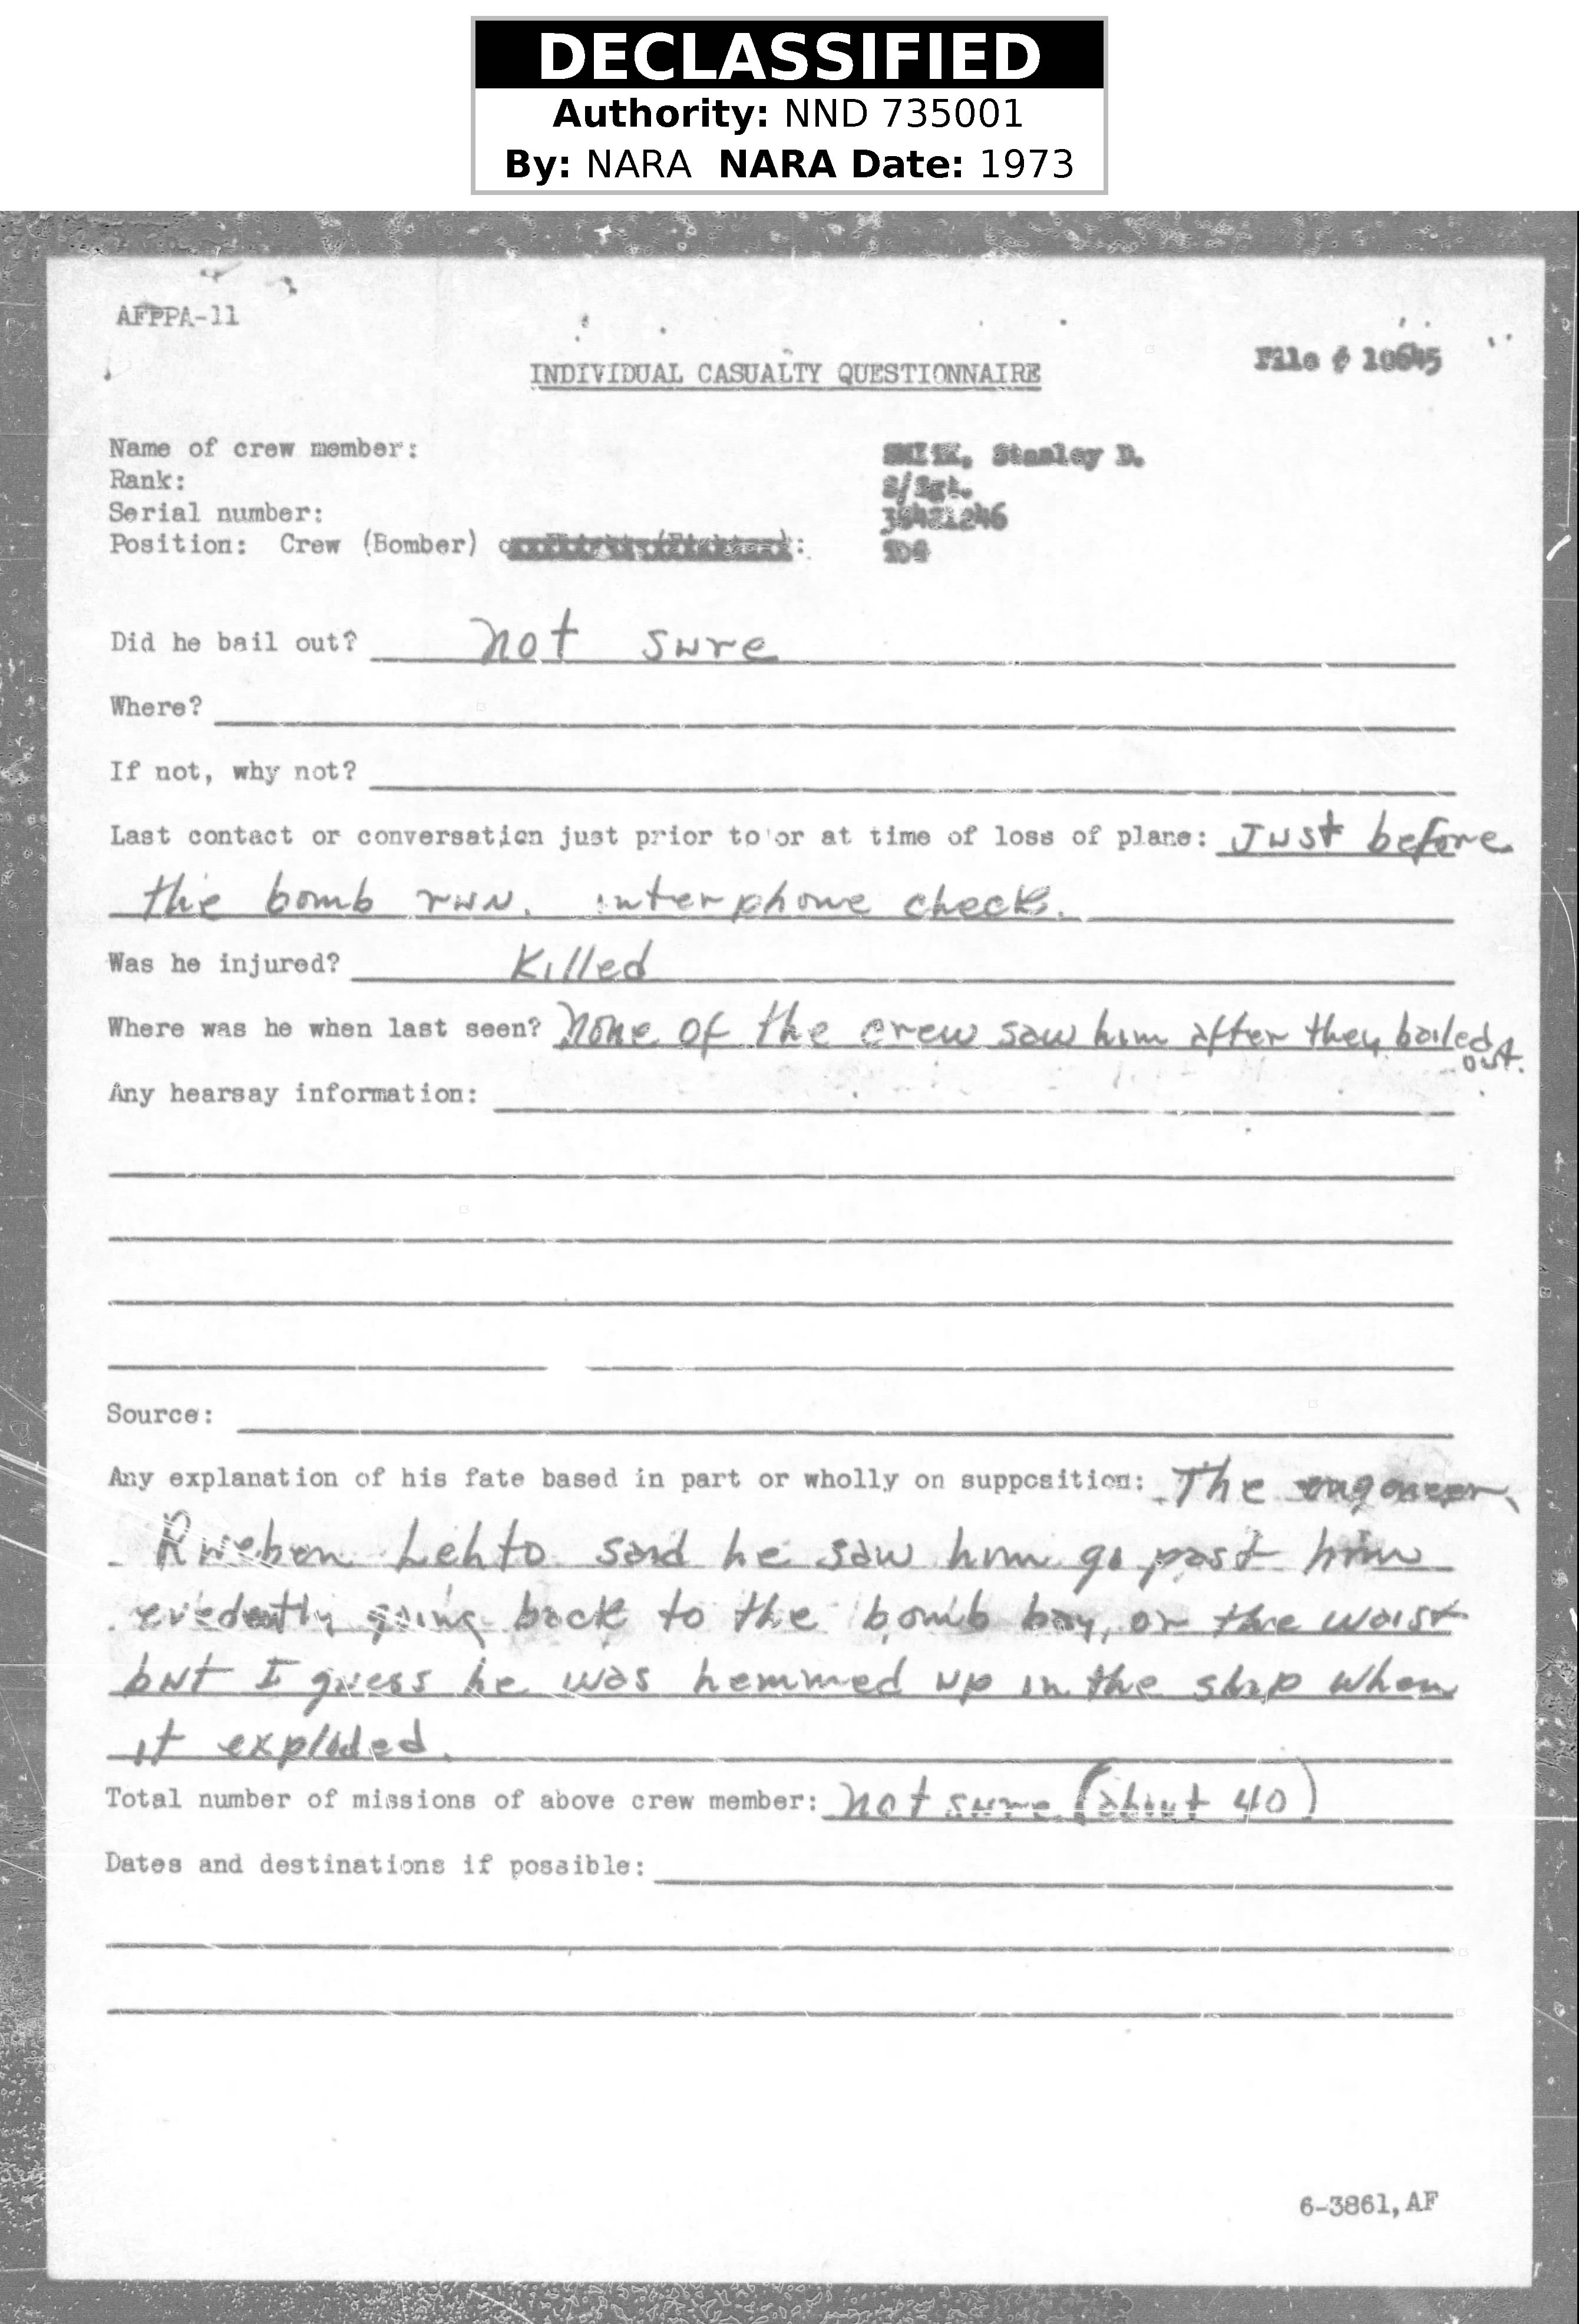 DECLASSIFIED
Authority: NND 735001
By: NARA NARA Date: 1973
AFPPA-11
INDIVIDUAL CASUALTY QUESTIONNAIRE
File # 10645
Name of crew member: Stanley D.
Rank: S/Sgt.
Serial number:
Position: Crew (Bomber)
Did he bail out? Not sure
Where?
If not, why not?
Last contact or conversation just prior to or at time of loss of plane: Just before
the bomb run. interphone check.
Was he injured? Killed
Where was he when last seen? None of the crew saw him after they bailed
out.
Any hearsay information:
Source:
Any explanation of his fate based in part or wholly on supposition: The
Rueben Lehto said he saw him go past him
evedently going back to the bomb bay, or the waist
but I guess he was hemmed up in the ship when
it exploded.
Total number of missions of above crew member: Not sure (about 40)
Dates and destinations if possible:
6-3861, AF